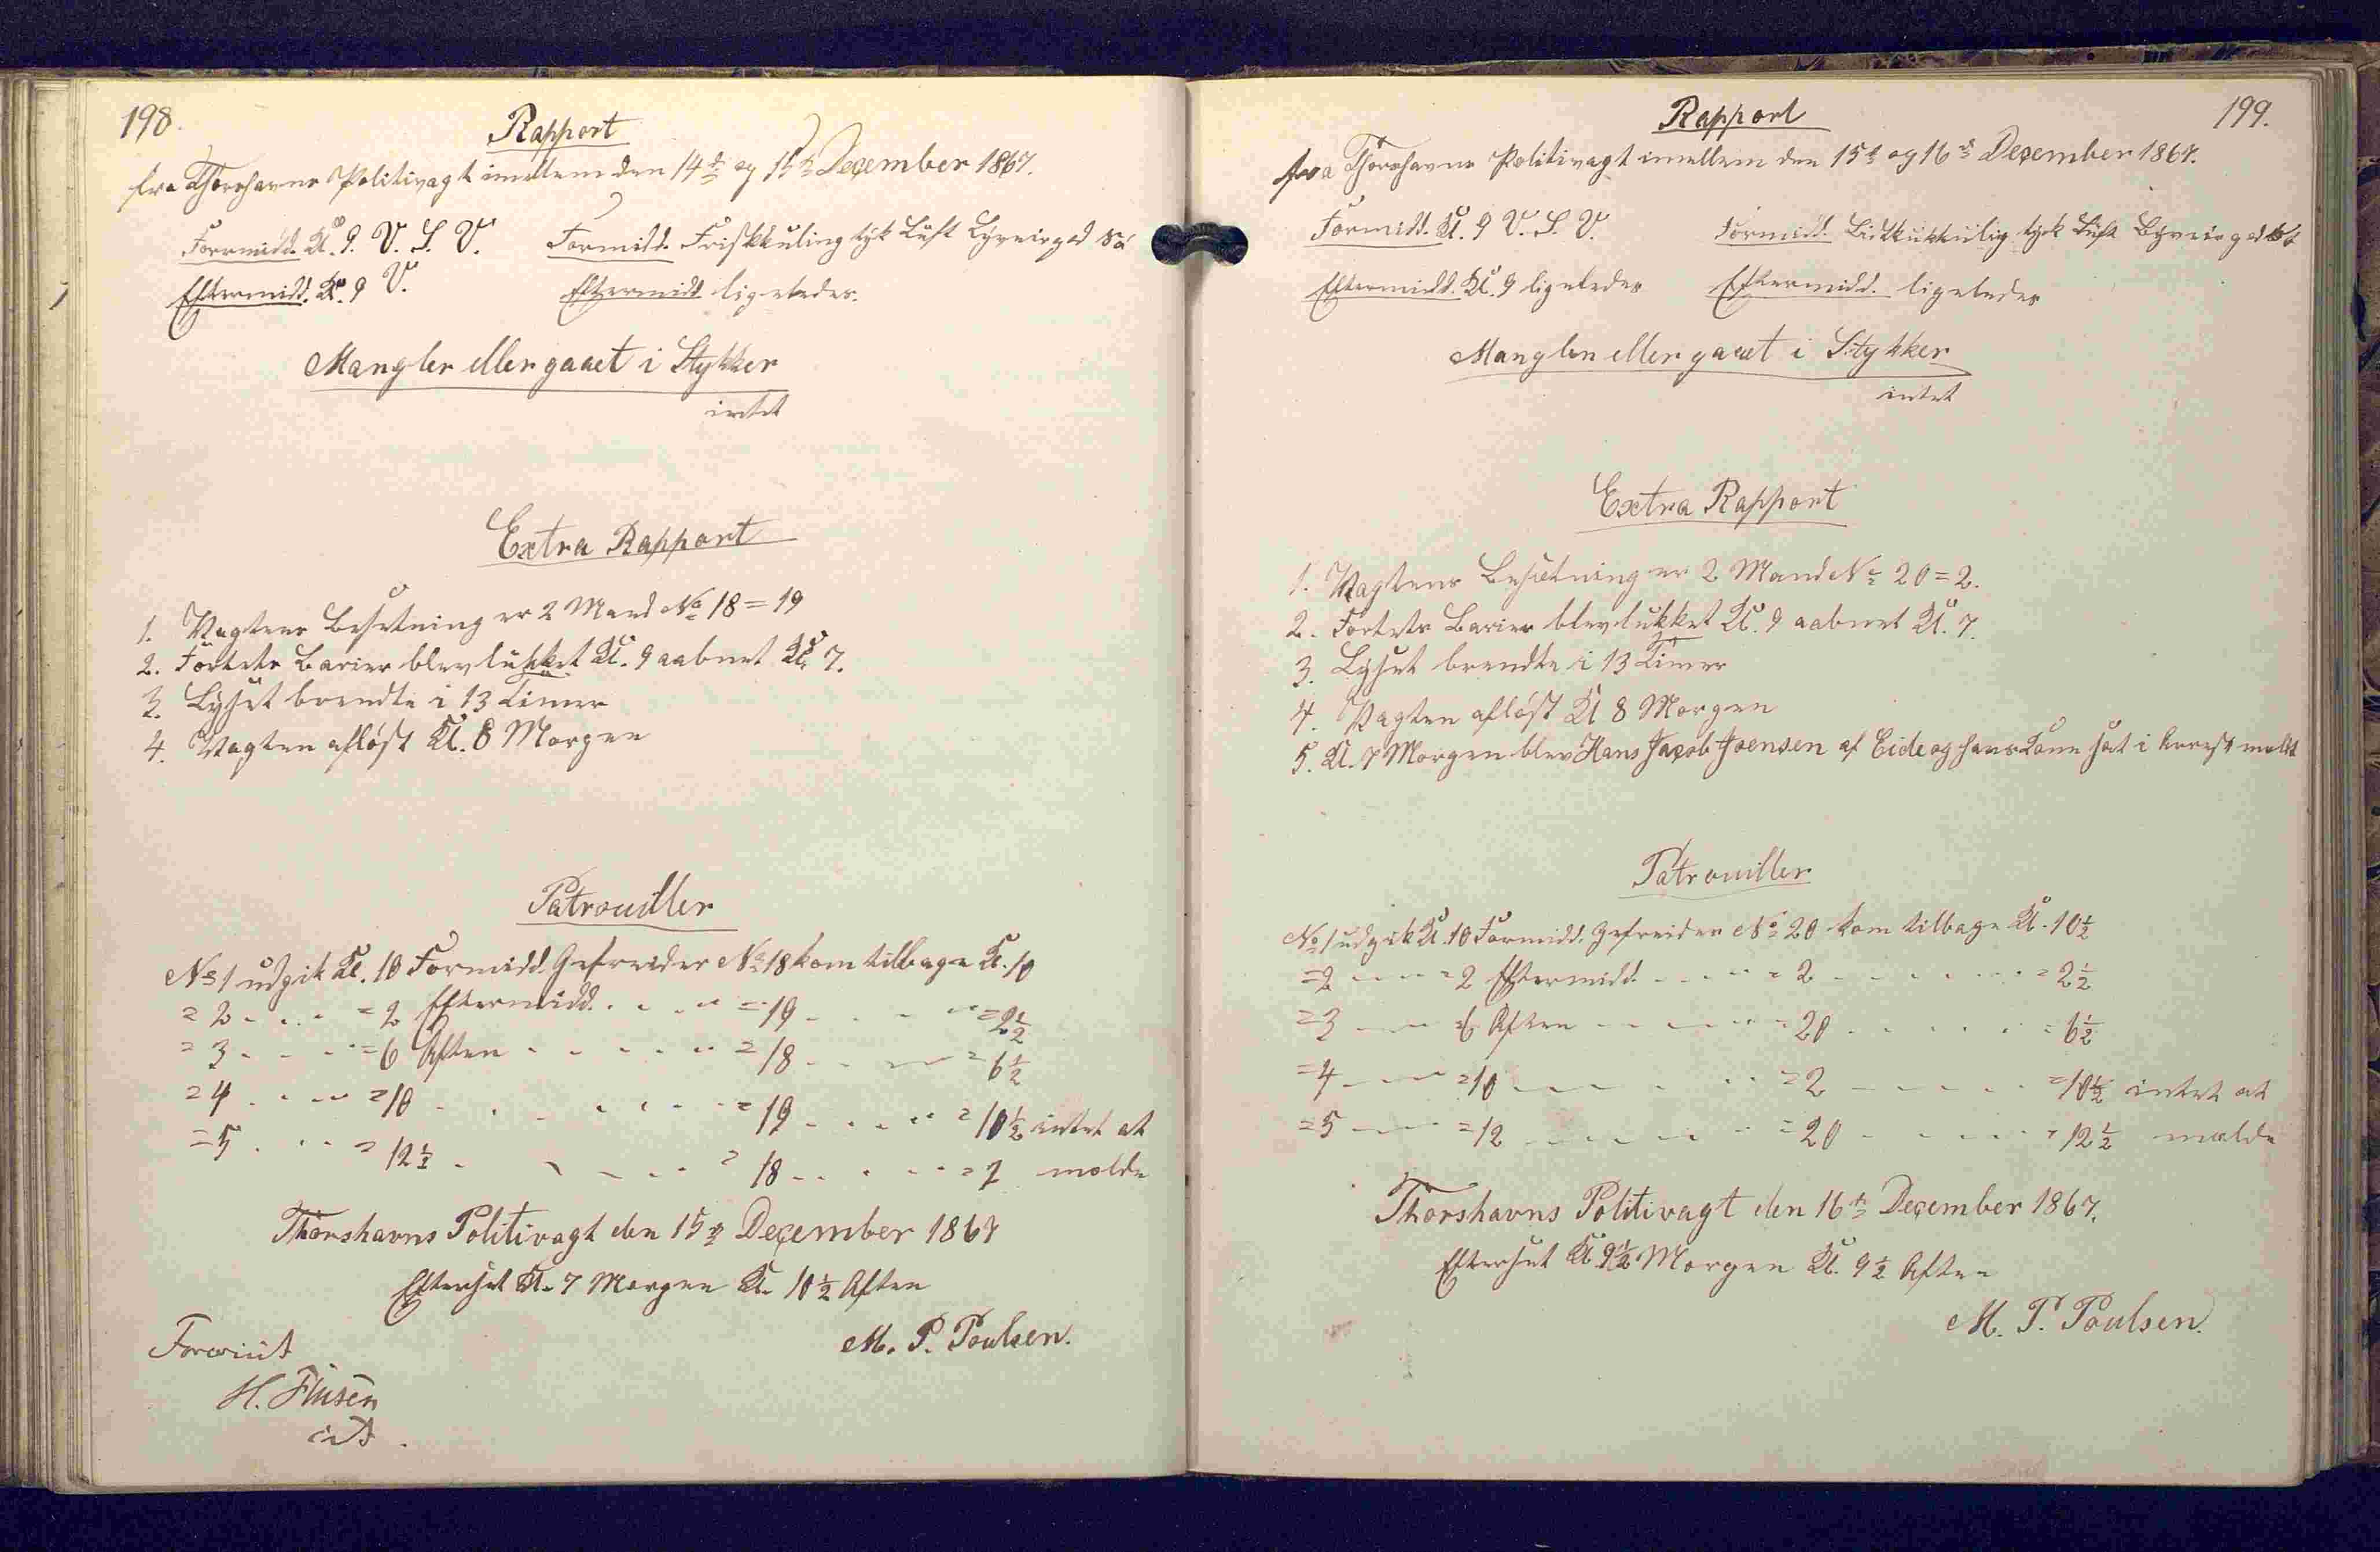 198.
Rapport
fra Thorshavns Politivagt imellem den 14de og 15de December 1867.
Formidd. Kl. 9. V. S. V. Formidd. Friskkuling tyk Luft
Eftermidd. Kl. 9 V. Eftermidd ligeledes.
Mangler eller gaaet i Stykker
intet
Extra Rapport
1. Vagtens Besetning er 2 Mand No 18 = 19
2. Fortets Barier blev lukket Kl. 9 aabnet Kl. 7.
3. Lyset brendte i 13 Timer
4. Vagten afløst Kl. 8 Morgen
Patrouiller
No 1 udgik Kl. 10 Formidd. Gefreider No 18 kom tilbage Kl. 10
= 2 - - - = 2 Eftermidd. - - - = 19 - - - = 2½
= 3 - - - = 6 Aften - - - = 18 - - - = 6½
= 4 - - - = 10 - - - = 19 - - - = 10½ intet at
= 5 - - - = 12½ - - - = 18 - - - = 1 melde
Thorshavns Politivagt den 15de December 1867
Efterset Kl. 7 Morgen Kl. 10½ Aften
M. P. Poulsen.
H.
199.
Rapport
fra Thorshavns Politivagt imellem den 15de og 16de December 1867.
Formidd. Kl. 9 V. S. V. Formidd. tyk Luft
Eftermidd. Kl. 9 ligeledes Eftermidd. ligeledes
Manglen eller gaaet i Stykker
intet
Extra Rapport
1. Vagtens Besætning er 2 Mand No 20 = 2.
2. Fortets Barier blev lukket Kl. 9 aabnet Kl. 7.
3. Lyset brendte i 13 Timer
4. Vagten afløst Kl 8 Morgen
5. Kl. 7 Morgen blev Hans Jacob Joensen af Eide og hans Kone sat i Arrest
Patrouiller
No 1 udgik Kl. 10 Formidd. Gefreider No 20 kom tilbage Kl. 10½
= 2 - - - = 2 Eftermidd. - - - = 2 - - - = 2½
= 3 - - - 6 Aften - - - = 20 - - - = 6½
= 4 - - - = 10 - - - = 2 - - - = 10½ intet at
= 5 - - - = 12 - - - = 20 - - - = 12½ melde
Thorshavns Politivagt den 16de December 1867.
Efterset Kl 9½ Morgen Kl. 9½ Aften
M. P. Poulsen.